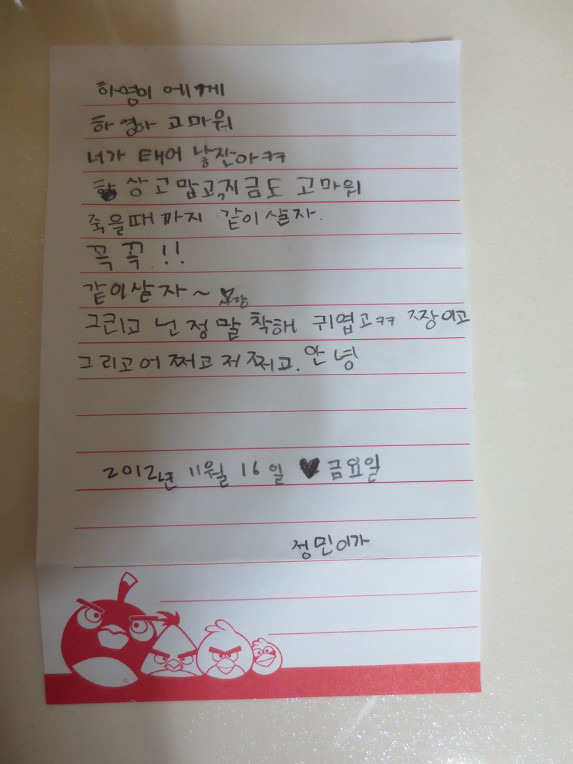 하영이 에게
하영아 고마워
너가 태어 낳잔아ㅋㅋ
항상고맙고,지금도 고마워
죽을때까지 같이살자.
꼭 꼭 !!
같이살자~
그리고 넌정말 착해 귀엽고ㅋㅋ 짱이고
그리고어쩌고저쩌고. 안녕
2012년 11월 16일 ♥금요일
정민이가